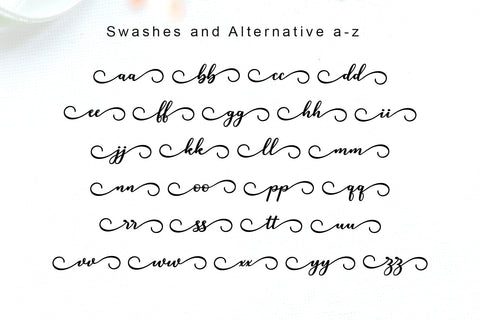 Swashes and Alternative a-z
aa bb cc dd
ee ff gg hh ii
jj kk ll mm
nn oo pp qq
rr ss tt uu
vv ww xx yy zz